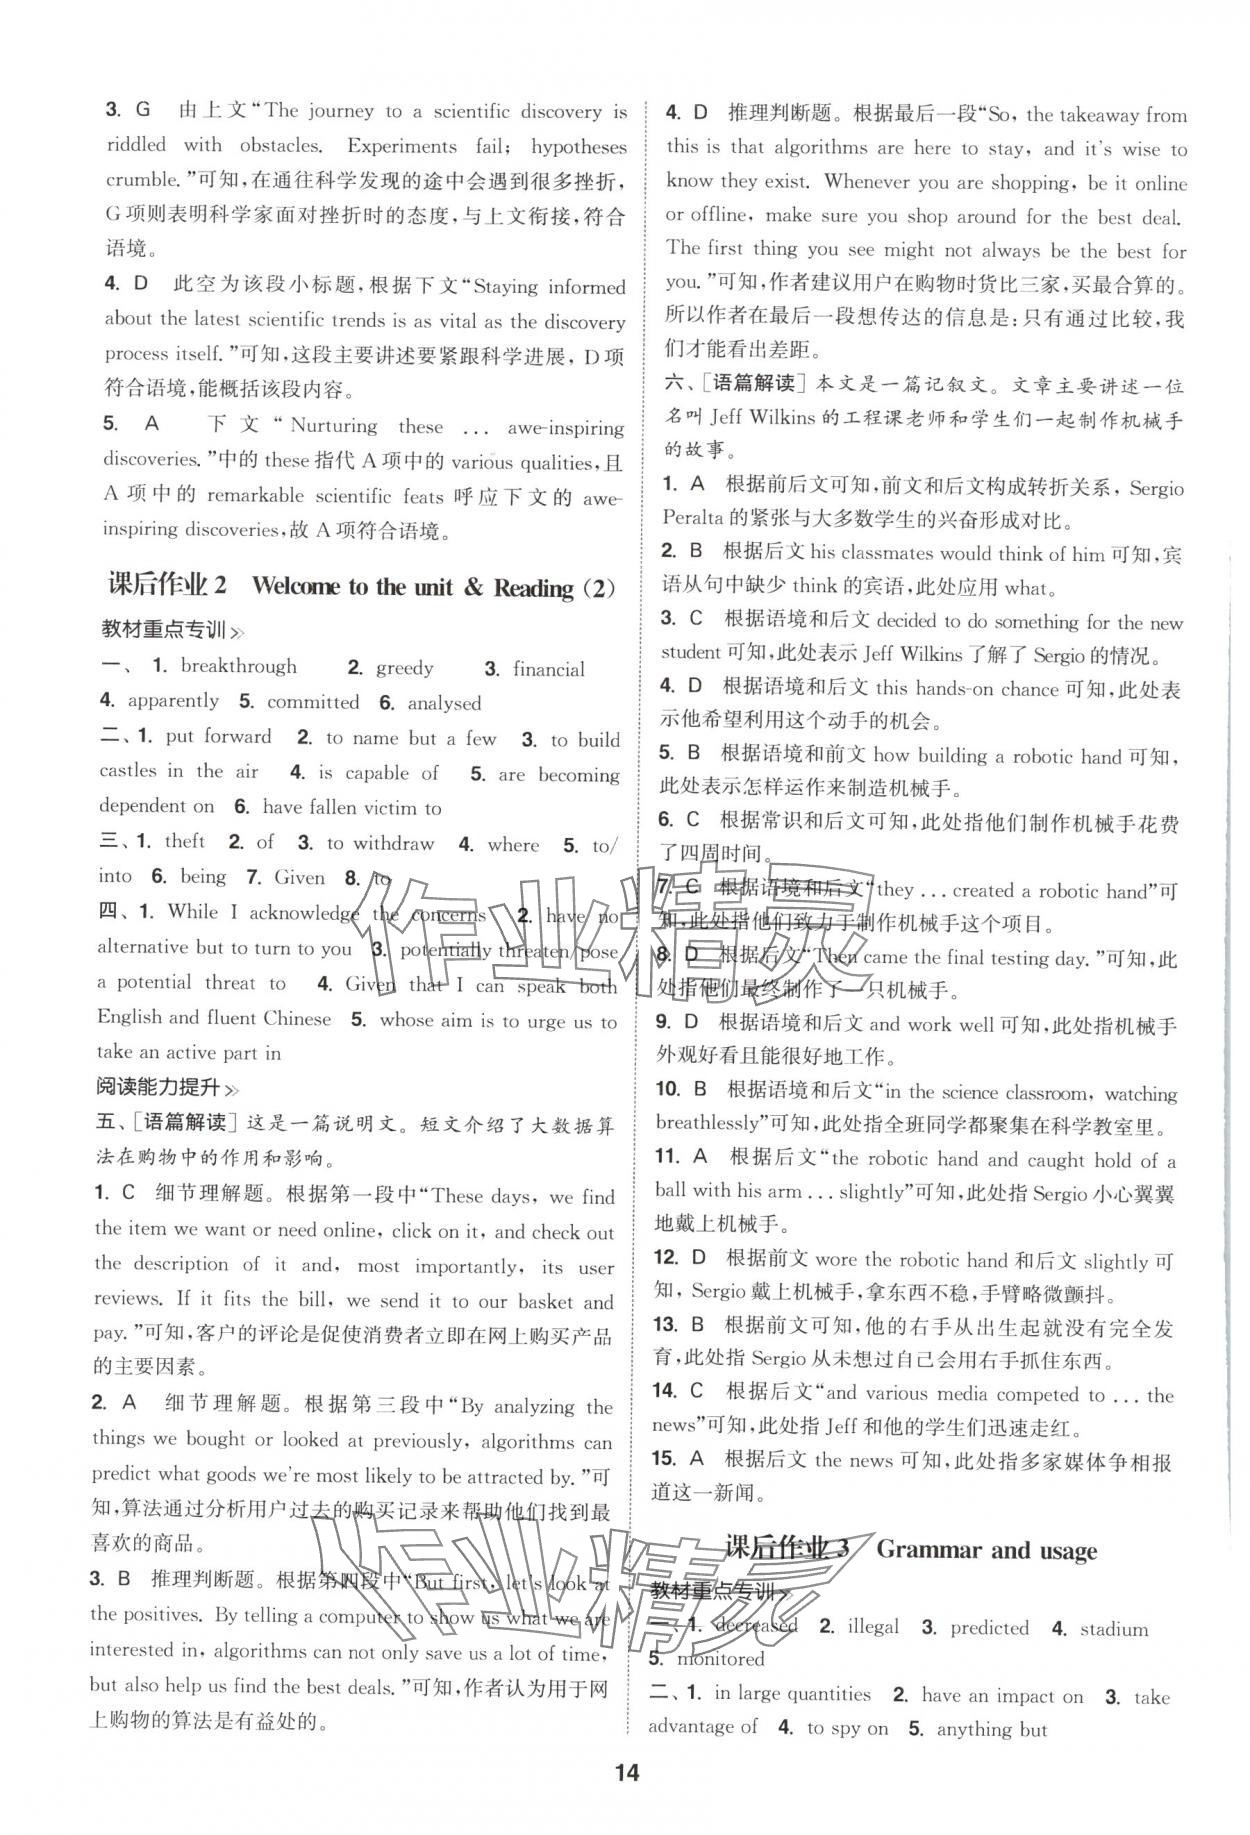 3. G 由上文“The journey to a scientific discovery is
riddled with obstacles. Experiments fail; hypotheses
crumble.”可知,在通往科学发现的途中会遇到很多挫折,
G项则表明科学家面对挫折时的态度,与上文衔接,符合
语境。
4. D 此空为该段小标题,根据下文“Staying informed
about the latest scientific trends is as vital as the discovery
process itself.”可知,这段主要讲述要紧跟科学进展,D项
符合语境,能概括该段内容。
5. A 下文“Nurturing these ... awe-inspiring
discoveries.”中的 these指代A项中的 various qualities,且
A项中的 remarkable scientific feats 呼应下文的 awe-
inspiring discoveries,故A项符合语境。
课后作业2 Welcome to the unit & Reading (2)
教材重点专训
一、1. breakthrough 2. greedy 3. financial
4. apparently 5. committed 6. analysed
二、1. put forward 2. to name but a few 3. to build
castles in the air 4. is capable of 5. are becoming
dependent on 6. have fallen victim to
三、1. theft 2. of 3. to withdraw 4. where 5. to/
into 6. being 7. Given 8. to
四、1. While I acknowledge the concerns 2. have no
alternative but to turn to you 3. potentially threaten/pose
a potential threat to 4. Given that I can speak both
English and fluent Chinese 5. whose aim is to urge us to
take an active part in
阅读能力提升
五、[语篇解读]这是一篇说明文。短文介绍了大数据算
法在购物中的作用和影响。
1. C 细节理解题。根据第一段中“These days, we find
the item we want or need online, click on it, and check out
the description of it and, most importantly, its user
reviews. If it fits the bill, we send it to our basket and
pay.”可知,客户的评论是促使消费者立即在网上购买产品
的主要因素。
2. A 细节理解题。根据第三段中“By analyzing the
things we bought or looked at previously, algorithms can
predict what goods we're most likely to be attracted by.”可
知,算法通过分析用户过去的购买记录来帮助他们找到最
喜欢的商品。
3. B 推理判断题。根据第四段中“But first, let's look at
the positives. By telling a computer to show us what we are
interested in, algorithms can not only save us a lot of time,
but also help us find the best deals.”可知,作者认为用于网
上购物的算法是有益处的。
4. D 推理判断题。根据最后一段“So, the takeaway from
this is that algorithms are here to stay, and it's wise to
know they exist. Whenever you are shopping, be it online
or offline, make sure you shop around for the best deal.
The first thing you see might not always be the best for
you.”可知,作者建议用户在购物时货比三家,买最合算的。
所以作者在最后一段想传达的信息是:只有通过比较,我
们才能看出差距。
六、[语篇解读]本文是一篇记叙文。文章主要讲述一位
名叫 Jeff Wilkins的工程课老师和学生们一起制作机械手
的故事。
1. A 根据前后文可知,前文和后文构成转折关系,Sergio
Peralta的紧张与大多数学生的兴奋形成对比。
2. B 根据后文 his classmates would think of him 可知,宾
语从句中缺少 think 的宾语,此处应用 what。
3. C 根据语境和后文 decided to do something for the new
student 可知,此处表示 Jeff Wilkins 了解了 Sergio 的情况。
4. D 根据语境和后文 this hands-on chance 可知,此处表
示他希望利用这个动手的机会。
5. B 根据语境和前文 how building a robotic hand 可知,
此处表示怎样运作来制造机械手。
6. C 根据常识和后文可知,此处指他们制作机械手花费
了四周时间。
7. C 根据语境和后文“they ... created a robotic hand”可
知,此处指他们致力于制作机械手这个项目。
8. D 根据后文“Then came the final testing day.”可知,此
处指他们最终制作了一只机械手。
9. D 根据语境和后文 and work well 可知,此处指机械手
外观好看且能很好地工作。
10. B 根据语境和后文“in the science classroom, watching
breathlessly”可知,此处指全班同学都聚集在科学教室里。
11. A 根据后文“the robotic hand and caught hold of a
ball with his arm ... slightly”可知,此处指 Sergio 小心翼翼
地戴上机械手。
12. D 根据前文 wore the robotic hand 和后文 slightly 可
知,Sergio 戴上机械手,拿东西不稳,手臂略微颤抖。
13. B 根据前文可知,他的右手从出生起就没有完全发
育,此处指 Sergio 从未想过自己会用右手抓住东西。
14. C 根据后文“and various media competed to ... the
news”可知,此处指 Jeff 和他的学生们迅速走红。
15. A 根据后文 the news 可知,此处指多家媒体争相报
道这一新闻。
课后作业3 Grammar and usage
教材重点专训
一、1. decreased 2. illegal 3. predicted 4. stadium
5. monitored
二、1. in large quantities 2. have an impact on 3. take
advantage of 4. to spy on 5. anything but
14
作业精灵
作业精灵